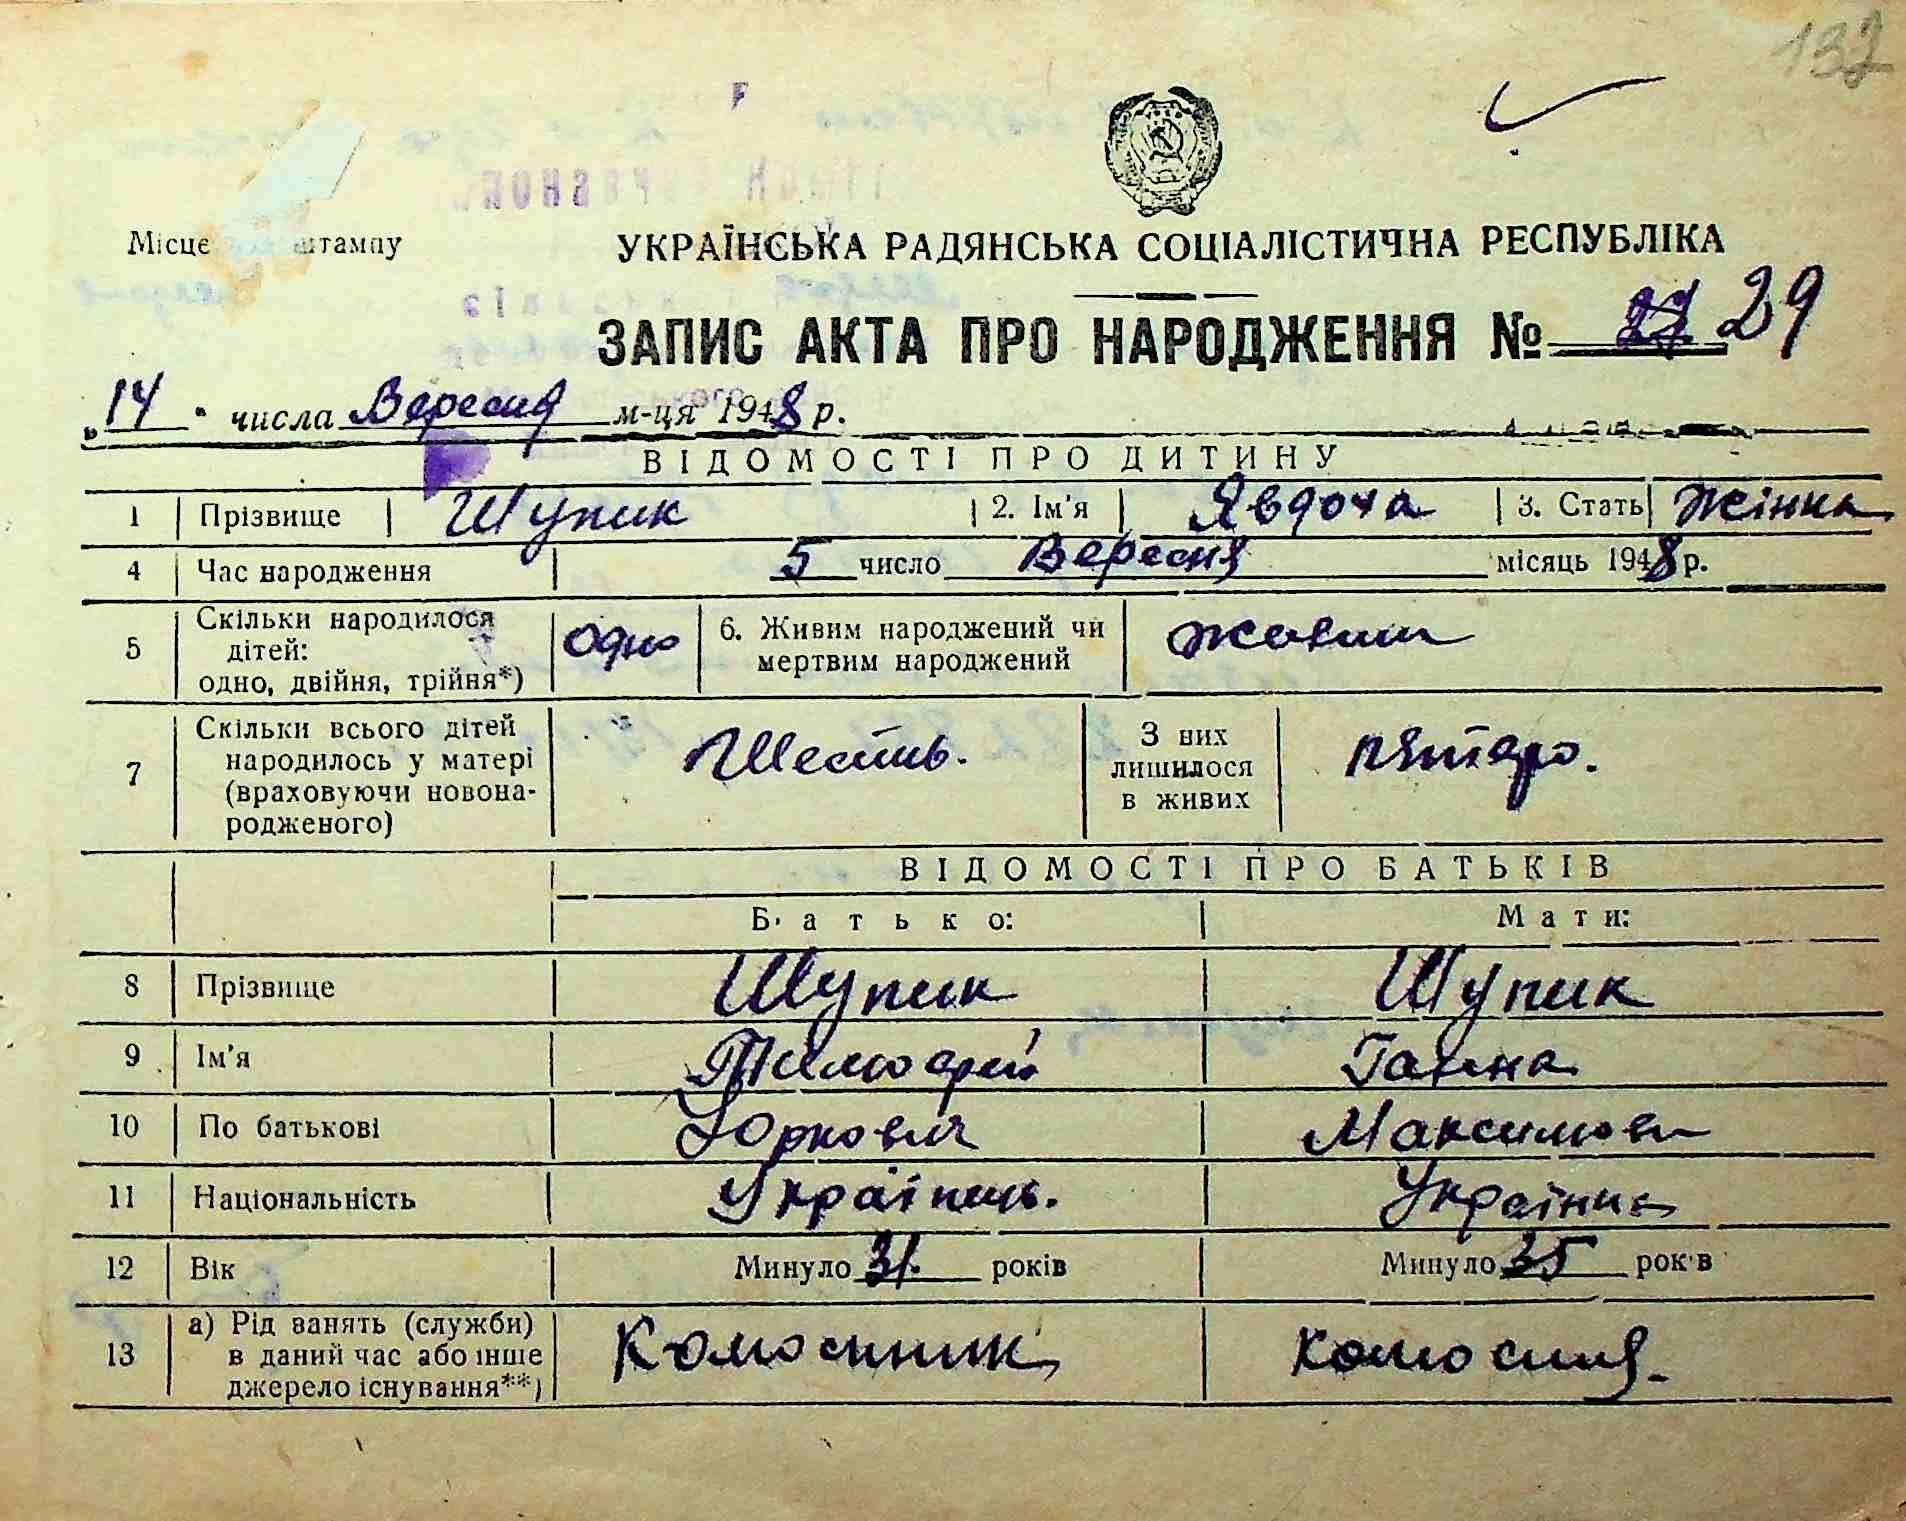 132
Місце штампу
УКРАЇНСЬКА РАДЯНСЬКА СОЦІАЛІСТИЧНА РЕСПУБЛІКА
ЗАПИС АКТА ПРО НАРОДЖЕННЯ № 29
„14" числа Вересня м-ця 1948 р.
ВІДОМОСТІ ПРО ДИТИНУ
1 Прізвище Шупик 2. Ім'я Явдоха 3. Стать Жінка
4 Час народження 5 число Вересня місяць 1948 р.
5 Скільки народилося дітей: одно, двійня, трійня*) одно 6. Живим народжений чи мертвим народжений живим
7 Скільки всього дітей народилось у матері (враховуючи новонародженого) Шесть. З них лишилося в живих пятеро.
ВІДОМОСТІ ПРО БАТЬКІВ
Батько: Мати:
8 Прізвище Шупик Шупик
9 Ім'я Тимофей Ганна
10 По батькові Юркович Максимовн
11 Національність Українець. Українка
12 Вік Минуло 31. років Минуло 35 років
13 а) Рід занять (служби) в даний час або інше джерело існування**) Колосник колосня.